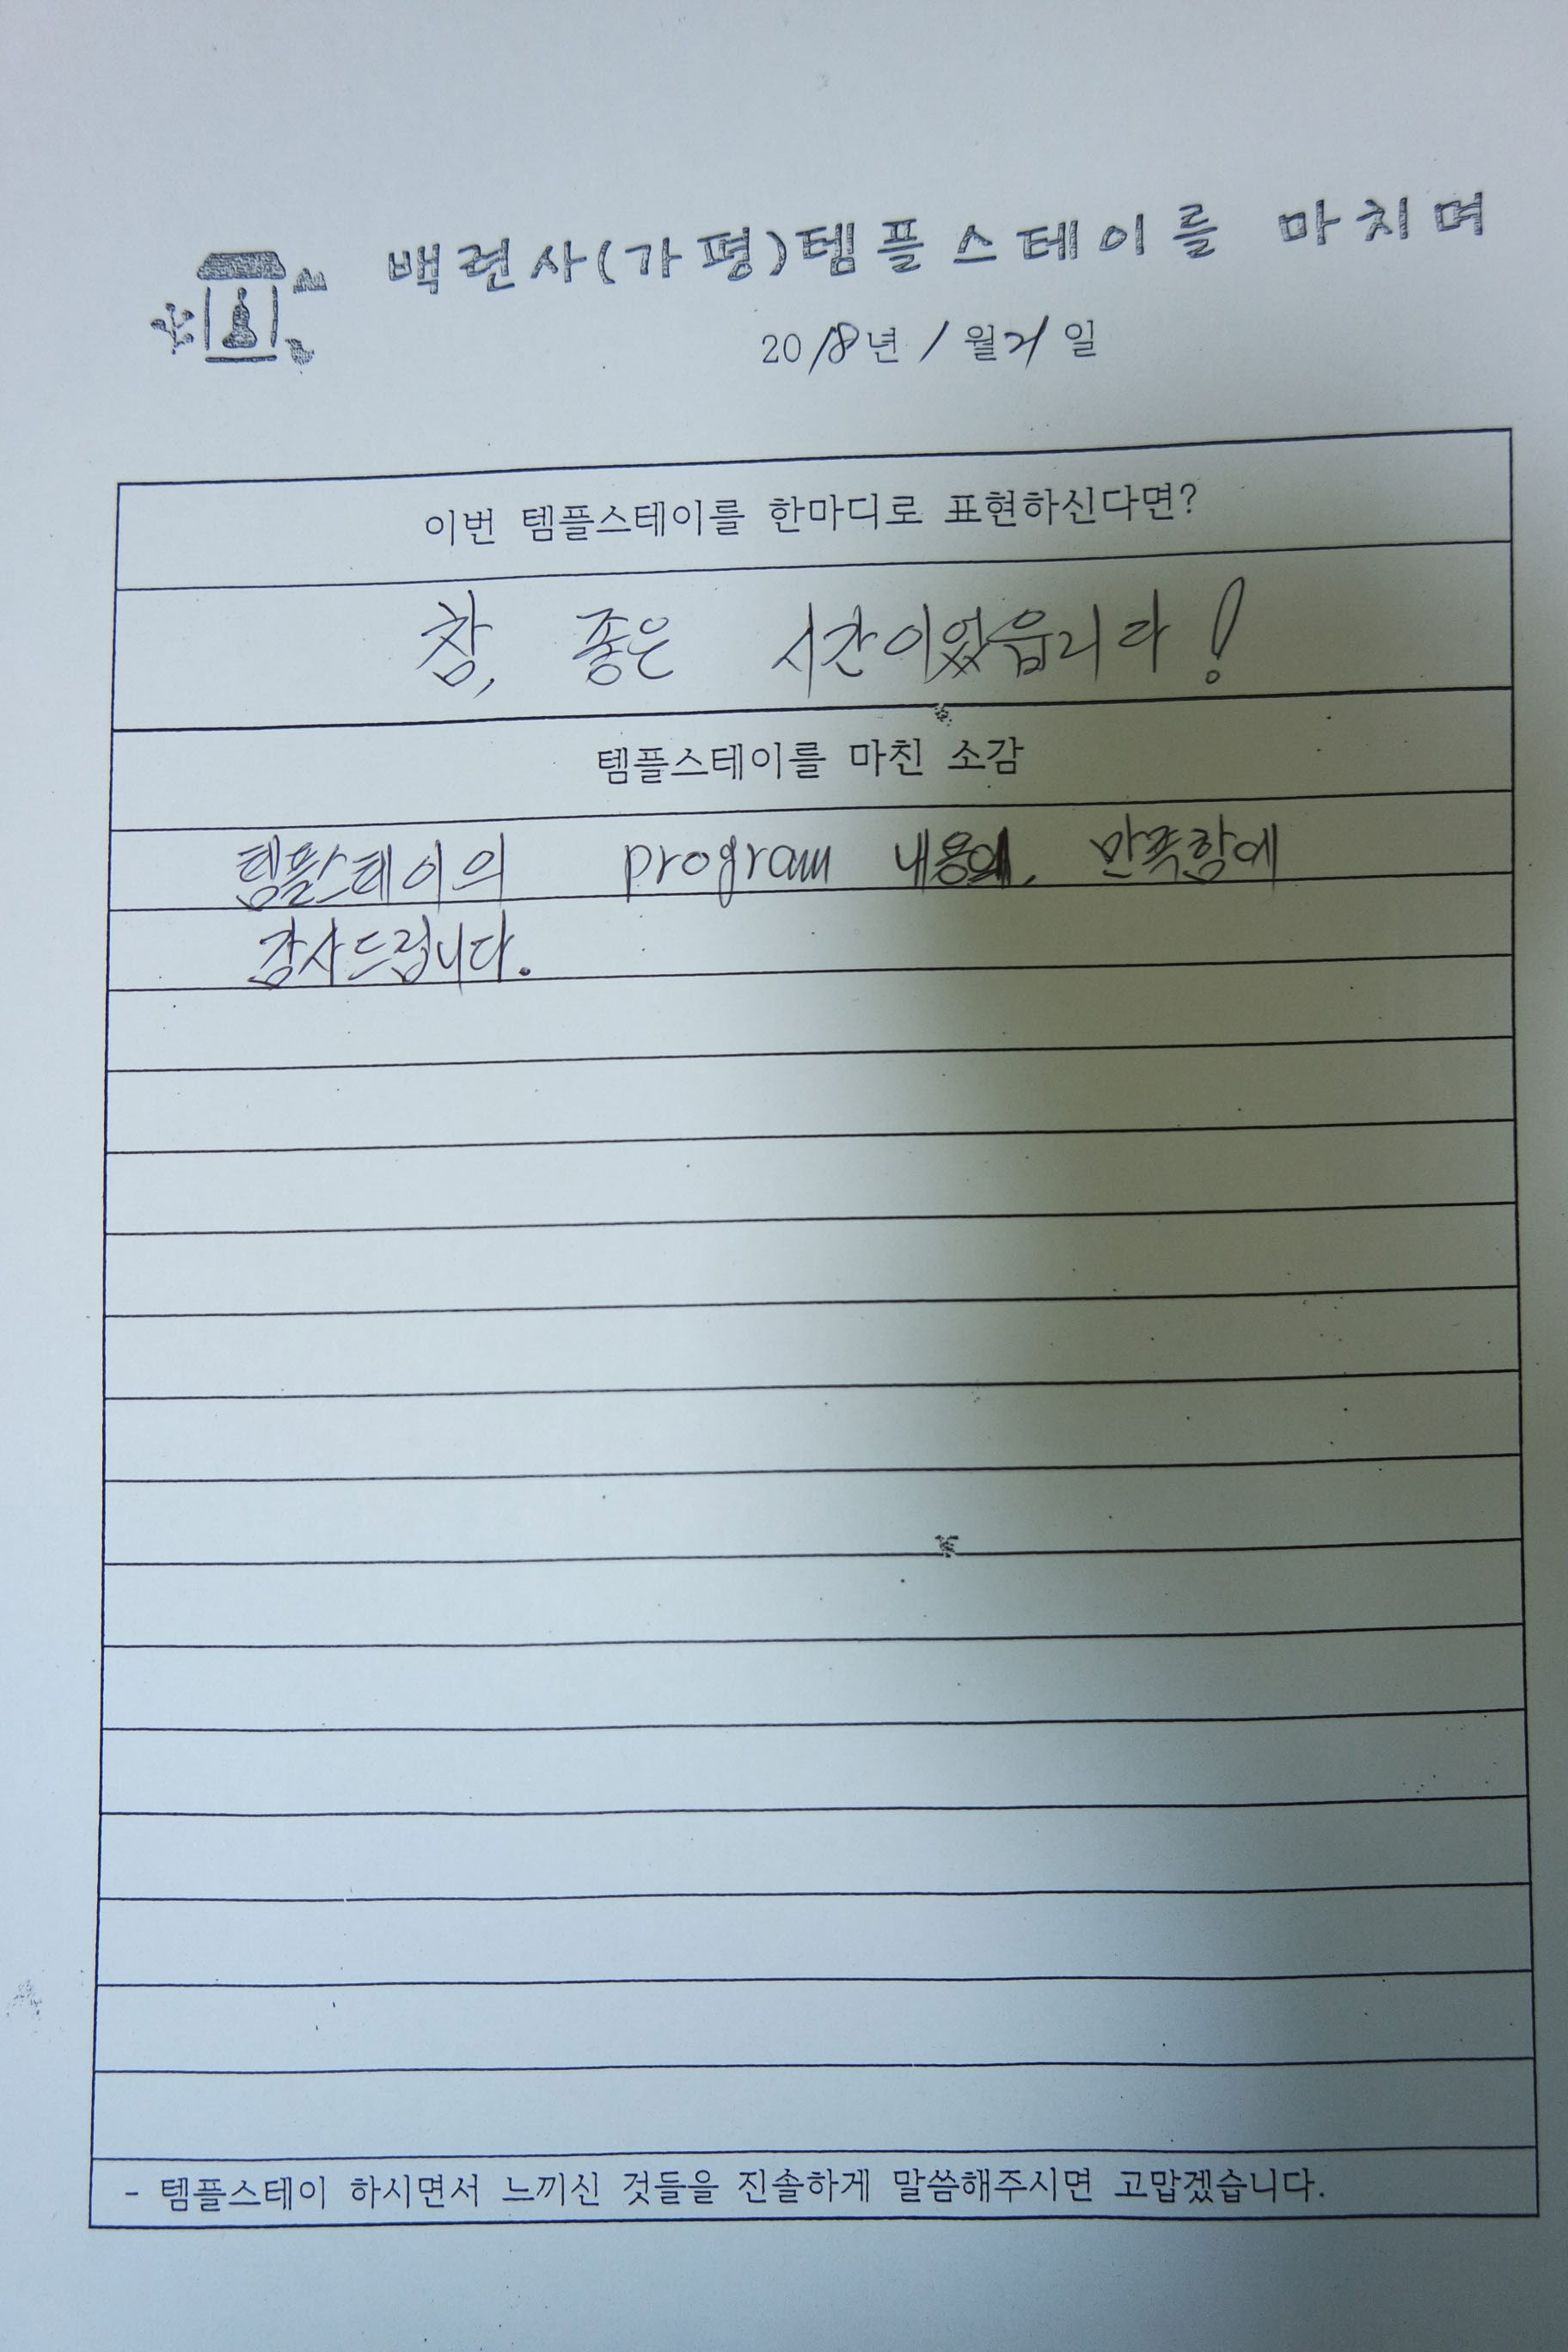 백련사(가평)템플스테이를 마치며
2018년 1월 21일
이번 템플스테이를 한마디로 표현하신다면?
참, 좋은 시간이었읍니다!
템플스테이를 마친 소감
템플스테이의 program 내용에, 만족함에
감사드립니다.
- 템플스테이 하시면서 느끼신 것들을 진솔하게 말씀해주시면 고맙겠습니다.